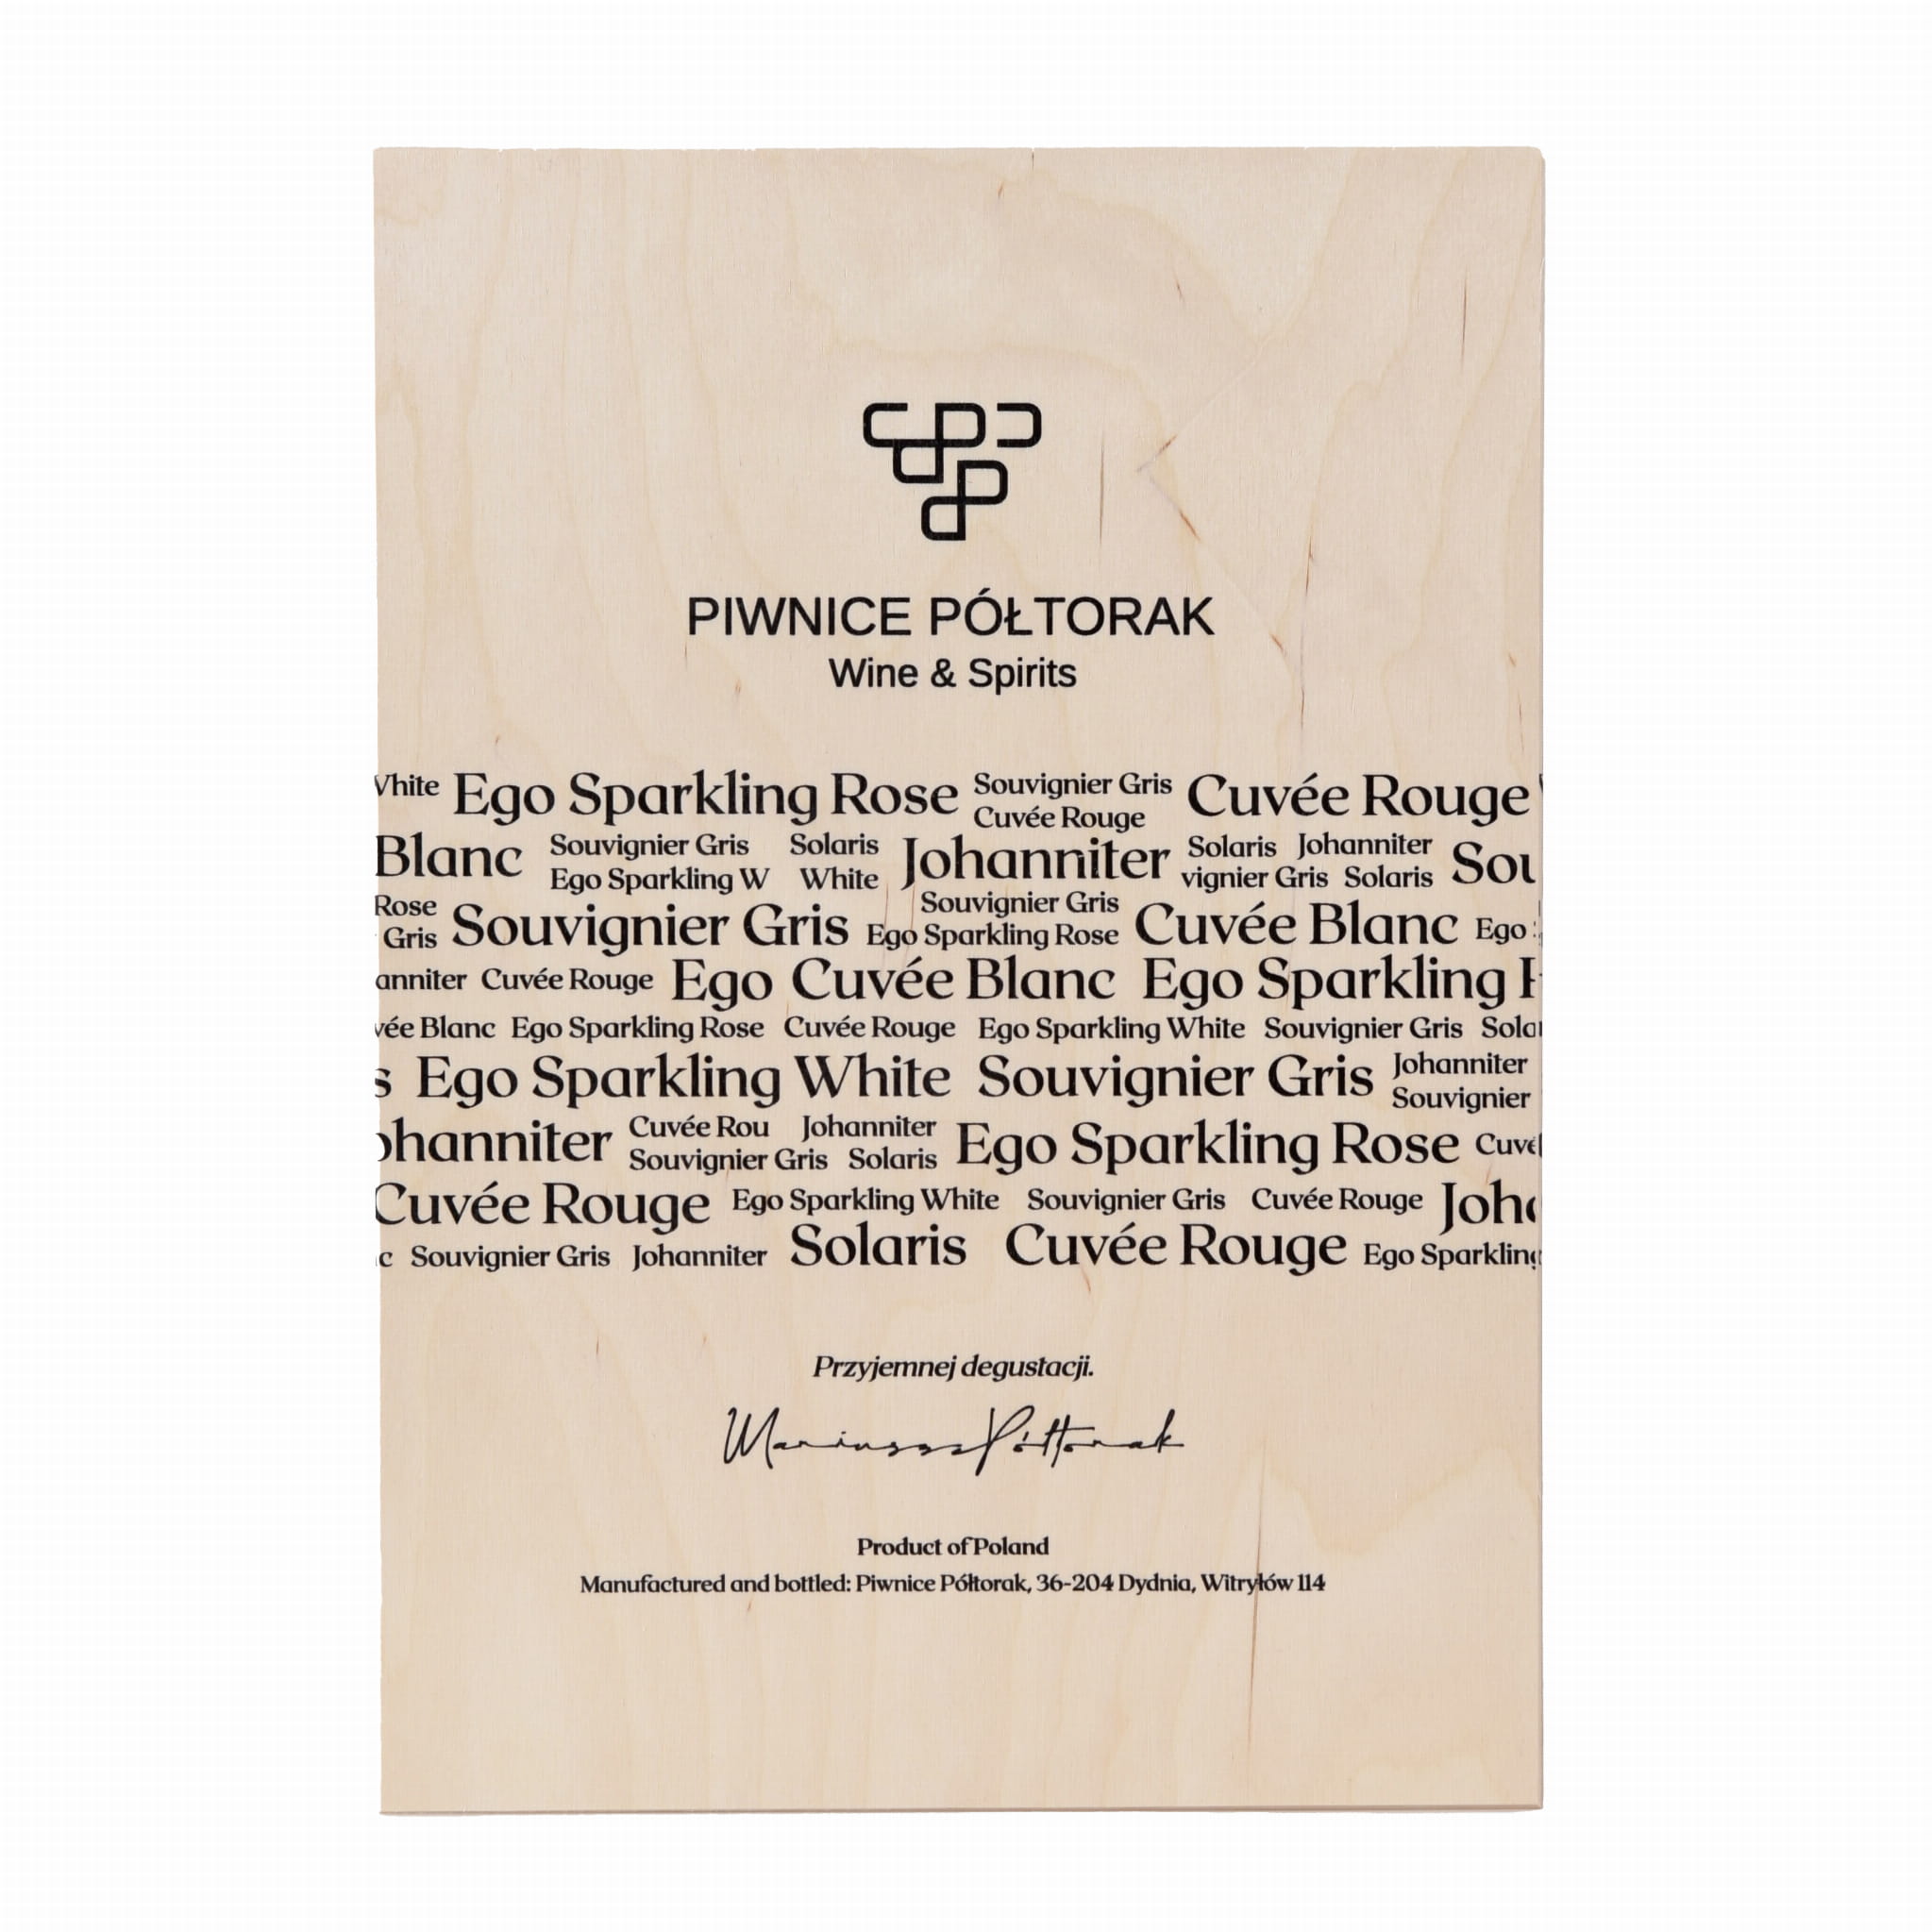 PIWNICE PÓŁTORAK
Wine & Spirits
White Ego Sparkling Rose Souvignier Gris Cuvée Rouge
Cuvée Rouge
Blanc Souvignier Gris Solaris Johanniter Solaris Johanniter Sou
Ego Sparkling W White vignier Gris Solaris
Rose Souvignier Gris Souvignier Gris Cuvée Blanc Ego
Gris Ego Sparkling Rose
anniter Cuvée Rouge Ego Cuvée Blanc Ego Sparkling
vée Blanc Ego Sparkling Rose Cuvée Rouge Ego Sparkling White Souvignier Gris Sola
s Ego Sparkling White Souvignier Gris Johanniter
Souvignier
ohanniter Cuvée Rou Johanniter Ego Sparkling Rose Cuvé
Souvignier Gris Solaris
Cuvée Rouge Ego Sparkling White Souvignier Gris Cuvée Rouge Joha
c Souvignier Gris Johanniter Solaris Cuvée Rouge Ego Sparkling
Przyjemnej degustacji.
Mariusz Półtorak
Product of Poland
Manufactured and bottled: Piwnice Półtorak, 36-204 Dydnia, Witryłów 114